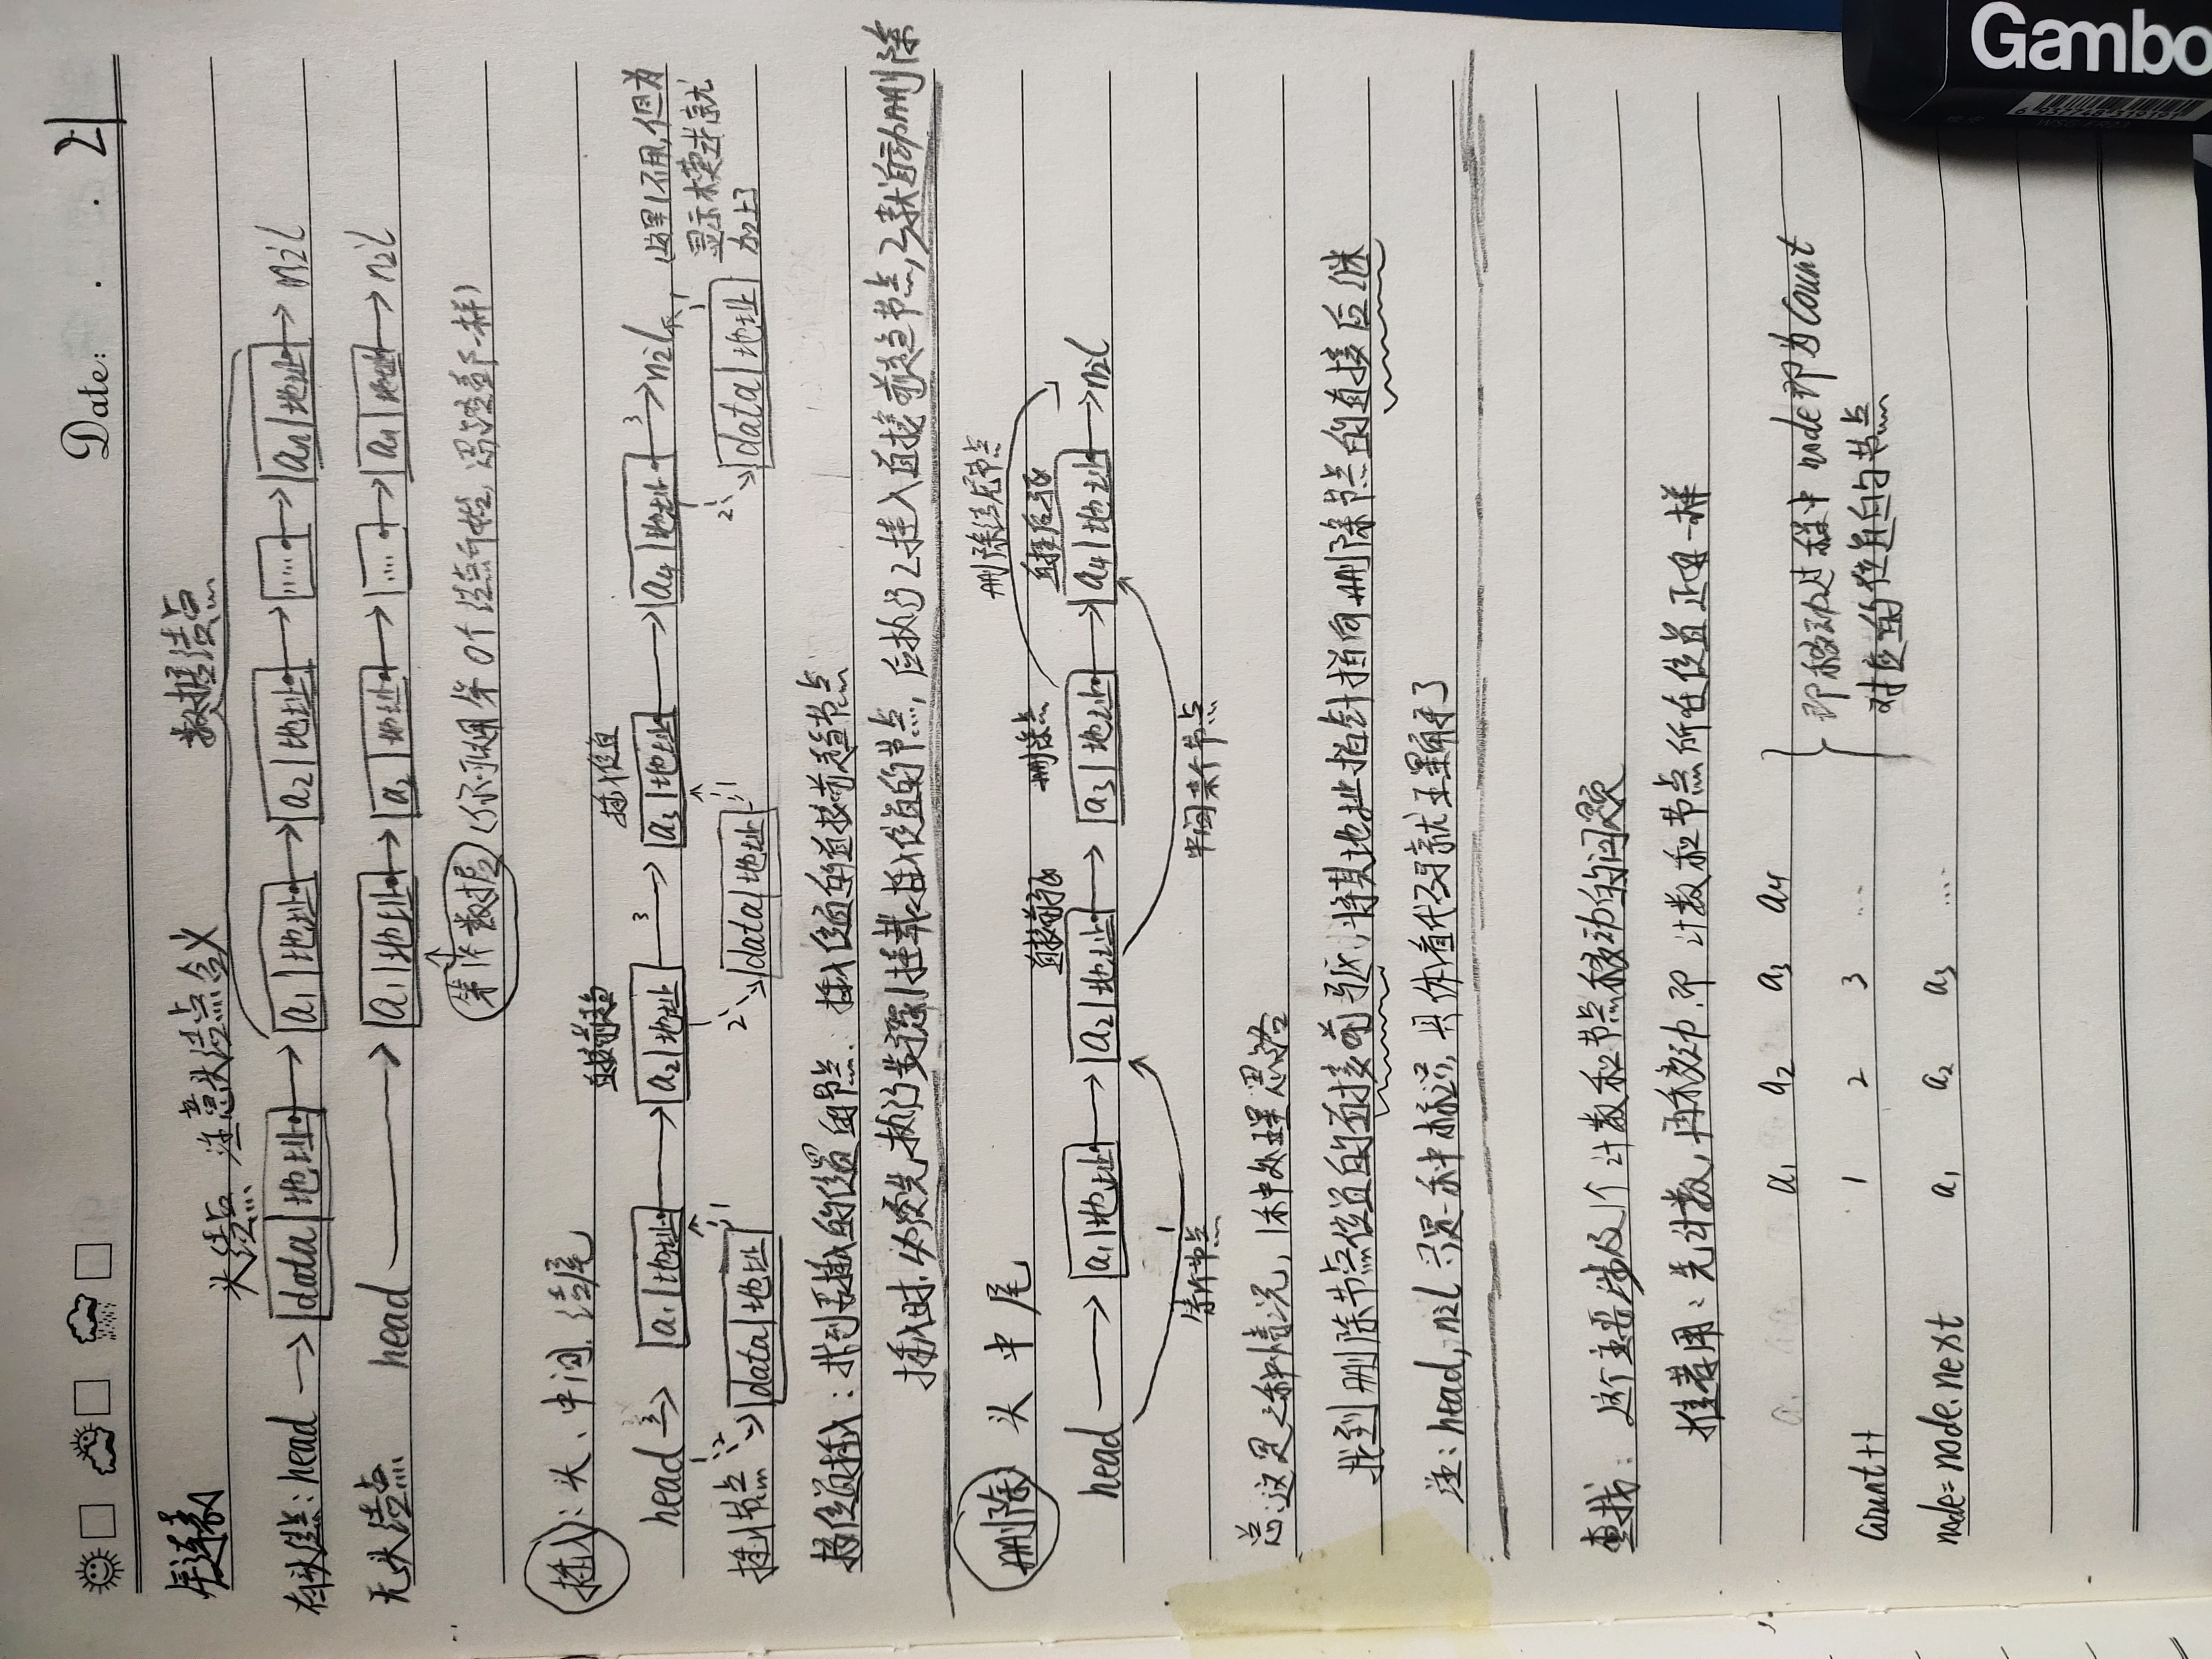 Date: . . 21
单连表
头结点 注意头结点含义 数据结点
有头结点: head → data|地址 → a1|地址 → a2|地址 → ..... → an|地址 → nil
无头结点 head → a1|地址 → a2|地址 → .... → an|地址 → nil
第1个数据 (你可以用第0个结点开始, 思路都一样)
插入: 头、中间、结尾
直接前趋 插入位置
head 3 → a1|地址 → a2|地址 3 → a3|地址 → a4|地址 3 → nil 1 这里1不用,但为
显示模式就
加上了
插入节点 2 data|地址 1 2 data|地址 1 2 data|地址
按位置插入: 找到要插入的位置的节点. 插入位置的直接前趋节点
插入时, 必须先执行步骤1挂载插入位置的节点, 后执行2挂入直接前趋节点, 3就自动删除
删除 头 中 尾
删除结尾节点
直接前驱 删除点 直接后驱
head → a1|地址 → a2|地址 → a3|地址 → a4|地址 → nil
第1个节点 中间某个节点
总:这是三种情况, 1种处理思路
找到删除节点位置的直接前驱, 将其地址指针指向删除节点的直接后继
注: head, nil 只是一种标识, 具体看代码就理解了
查找: 这个主要涉及1个计数和节点移动的问题
推荐用: 先计数, 再移动, 即 计数和节点所在位置正好一样
a1 a2 a3 a4
count++ 1 2 3 ...
node=node.next a1 a2 a3 ....
即移动过程中 node即为Count
对应的位置的节点
Gambo